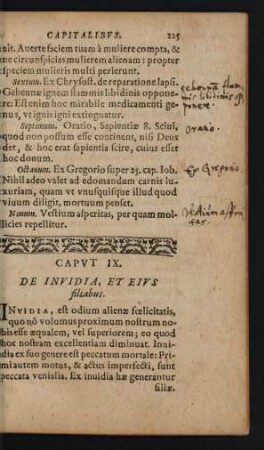 CAPITALIBVS. 225
xit. Averte faciem tuam à muliere compta, &
ne circunspicias mulierem alienam: propter
speciem mulieris multi perierunt.
Sextum. Ex Chrysost. de reparatione lapsi.
Gehennæ ignem flammis libidinis oppone-
re: Est enim hoc mirabile medicamenti ge-
nus, vt ignis igni extinguatur.
Septimum. Oratio, Sapientiæ 8. Sciui,
quod non possum esse continens, nisi Deus
det, & hoc erat sapientia scire, cuius esset
hoc donum.
Octauum. Ex Gregorio super 25. cap. Iob.
Nihil adeo valet ad edomandam carnis lu-
xuriam, quam vt vnusquisque illud quod
viuum diligit, mortuum penset.
Nonum. Vestium asperitas, per quam mol-
licies repellitur.
oratio.
CAPVT IX.
DE INVIDIA, ET EIVS
filiabus.
INVIDIA, est odium alienæ fœlicitatis,
quo nō volumus proximum nostrum no-
bis esse æqualem, vel superiorem; eo quod
hoc nostram excellentiam diminuat. Inui-
dia ex suo genere est peccatum mortale: Pri-
mi autem motus, & actus imperfecti, sunt
peccata venialia. Ex inuidia hæ generantur
filiæ,